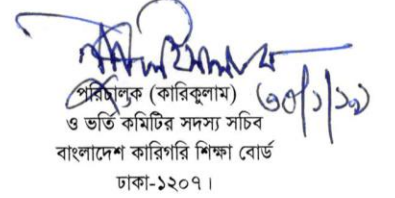 পরিচালক (কারিকুলাম)
ও ভর্তি কমিটির সদস্য সচিব
বাংলাদেশ কারিগরি শিক্ষা বোর্ড
ঢাকা-১২০৭।